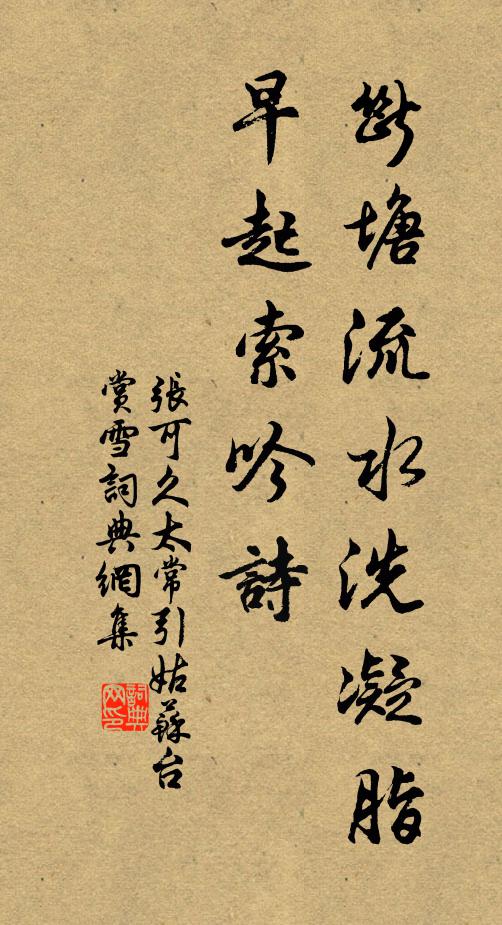 斷塘流水洗凝脂
早起索吟詩
張可久太常引姑蘇台
賞雪詞典網集
詞典网印